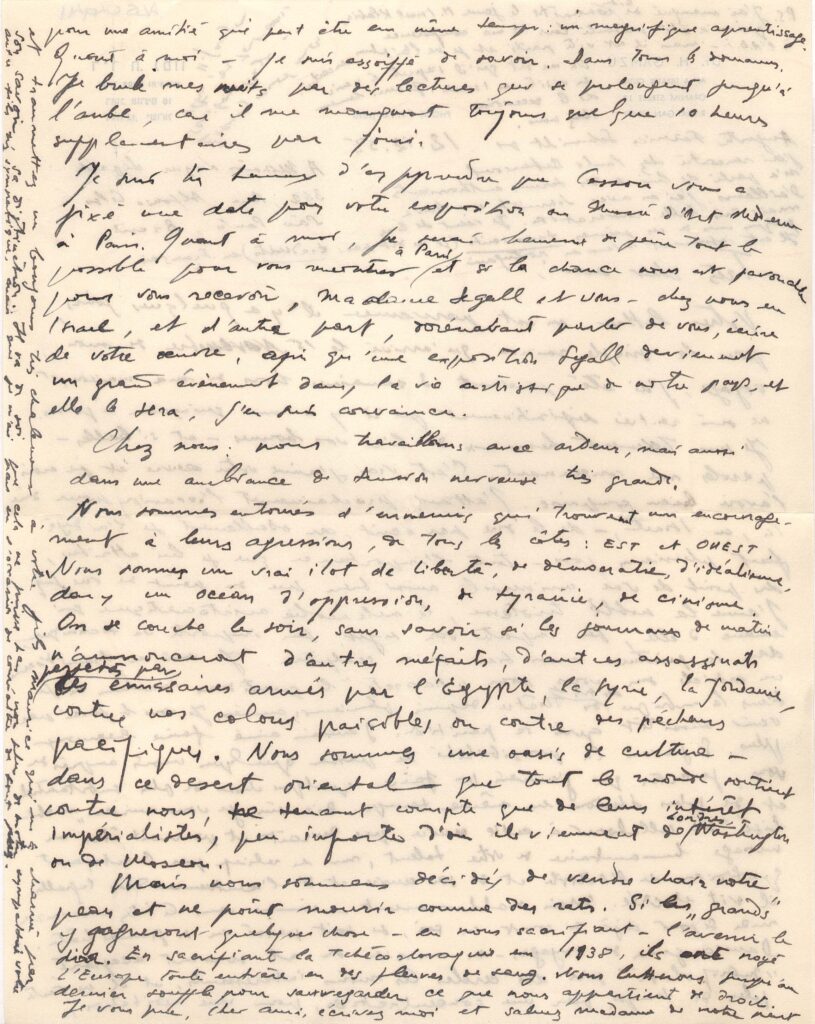 pour une amitié qui peut être en même temps: un magnifique aprentissage.
Quant à moi – je suis assoiffé de savoir. Dans tous les domaines.
Je brule mes nuits par des lectures qui se prolongent jusqu'à
l'aube, car il me manquent toujours quelque 10 heures
supplementaires par jour.
Je suis très heureux d'apprendre que Cassou vous a
fixé une date pour votre exposition au Musée d'Art Moderne
à Paris. Quant à moi, je serais heureux de faire tout le
possible pour vous à Paris et si la chance nous est favorable
pour vous recevoir, Madame Segall et vous – chez nous en
Israel, et d'autre part, dorénavant parler de vous, écrire
de votre œuvre, afin qu'une exposition Segall deviennent
un grand évènement dans la vie artistique de notre pays, et
elle le sera, j'en suis convaincu.
Chez nous: nous travaillons avec ardeur, mais aussi
dans une ambiance de tension nerveuse très grande.
Nous sommes entourés d'ennemis qui trouvent un encourage-
ment à leurs agressions, de tous les côtés: EST et OUEST.
Nous sommes un vrai ilot de liberté, de démocratie, d'idéalisme,
dans un océan d'oppression, de tyranie, de cinisme.
On se couche le soir, sans savoir si les journaux de matin
n'annonceront d'autres méfaits, d'autres assassinats
perpetrés par
des émissaires armés par l'Egypte, la Syrie, la Jordanie,
contre nos colons paisibles ou contre des pêcheurs
pacifiques. Nous sommes une oasis de culture –
dans ce desert oriental – que tout le monde soutient
contre nous, ne tenant compte que de leurs intérêt
impérialistes, peu importe d'où ils viennent de Londres, Washington
ou de Moscou.
Mais nous sommes décidés de vendre chair votre
peau et ne point mourir comme des rats. Si les "grands"
y gagneront quelque chose – en nous sacrifiant – l'avenir le
dira. En sacrifiant la Tchécoslovaquie en 1938, ils ont noyé
l'Europe toute entière en des fleuves de sang. Nous lutterons jusqu'au
dernier souffle pour sauvegarder ce que nous appartient de droit.
Je vous prie, cher ami, écrivez moi et saluez madame de notre part
et transmettez un bonjour très chaleureux à votre fils Maurice qui m'a charmé par
son savoir, sa distinction. Il va de soi que